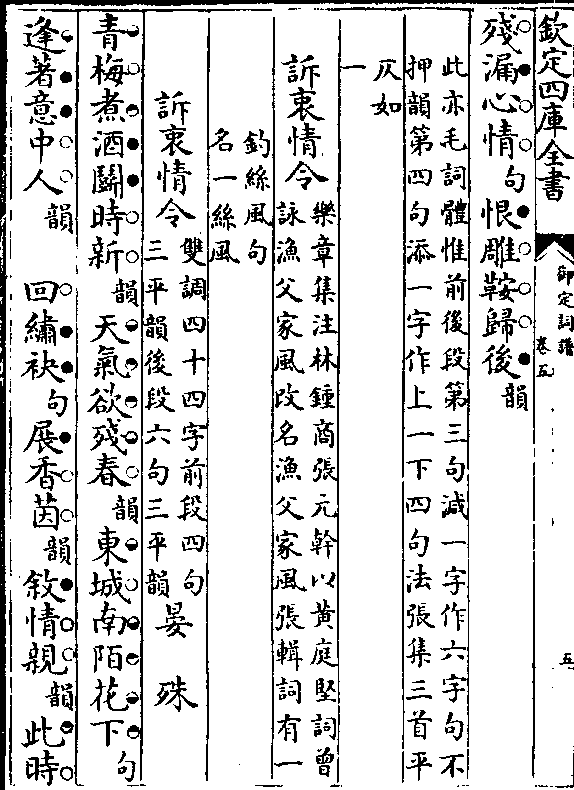 欽定四庫全書
御定詞譜
卷五
五
殘漏心情句恨雕鞍歸後韻
此亦毛詞體惟前後段第三句減一字作六字句不
押韻第四句添一字作上一下四句法張集三首平
仄如
一
訴衷情令
樂章集注林鍾商張元幹以黃庭堅詞曾
詠漁父家風改名漁父家風張輯詞有一
釣絲風句
名一絲風
訴衷情令
雙調四十四字前段四句
三平韻後段六句三平韻
晏殊
青梅煮酒鬭時新韻天氣欲殘春韻東城南陌花下句
逢著意中人韻 回繡袂句展香茵韻敘情親韻此時